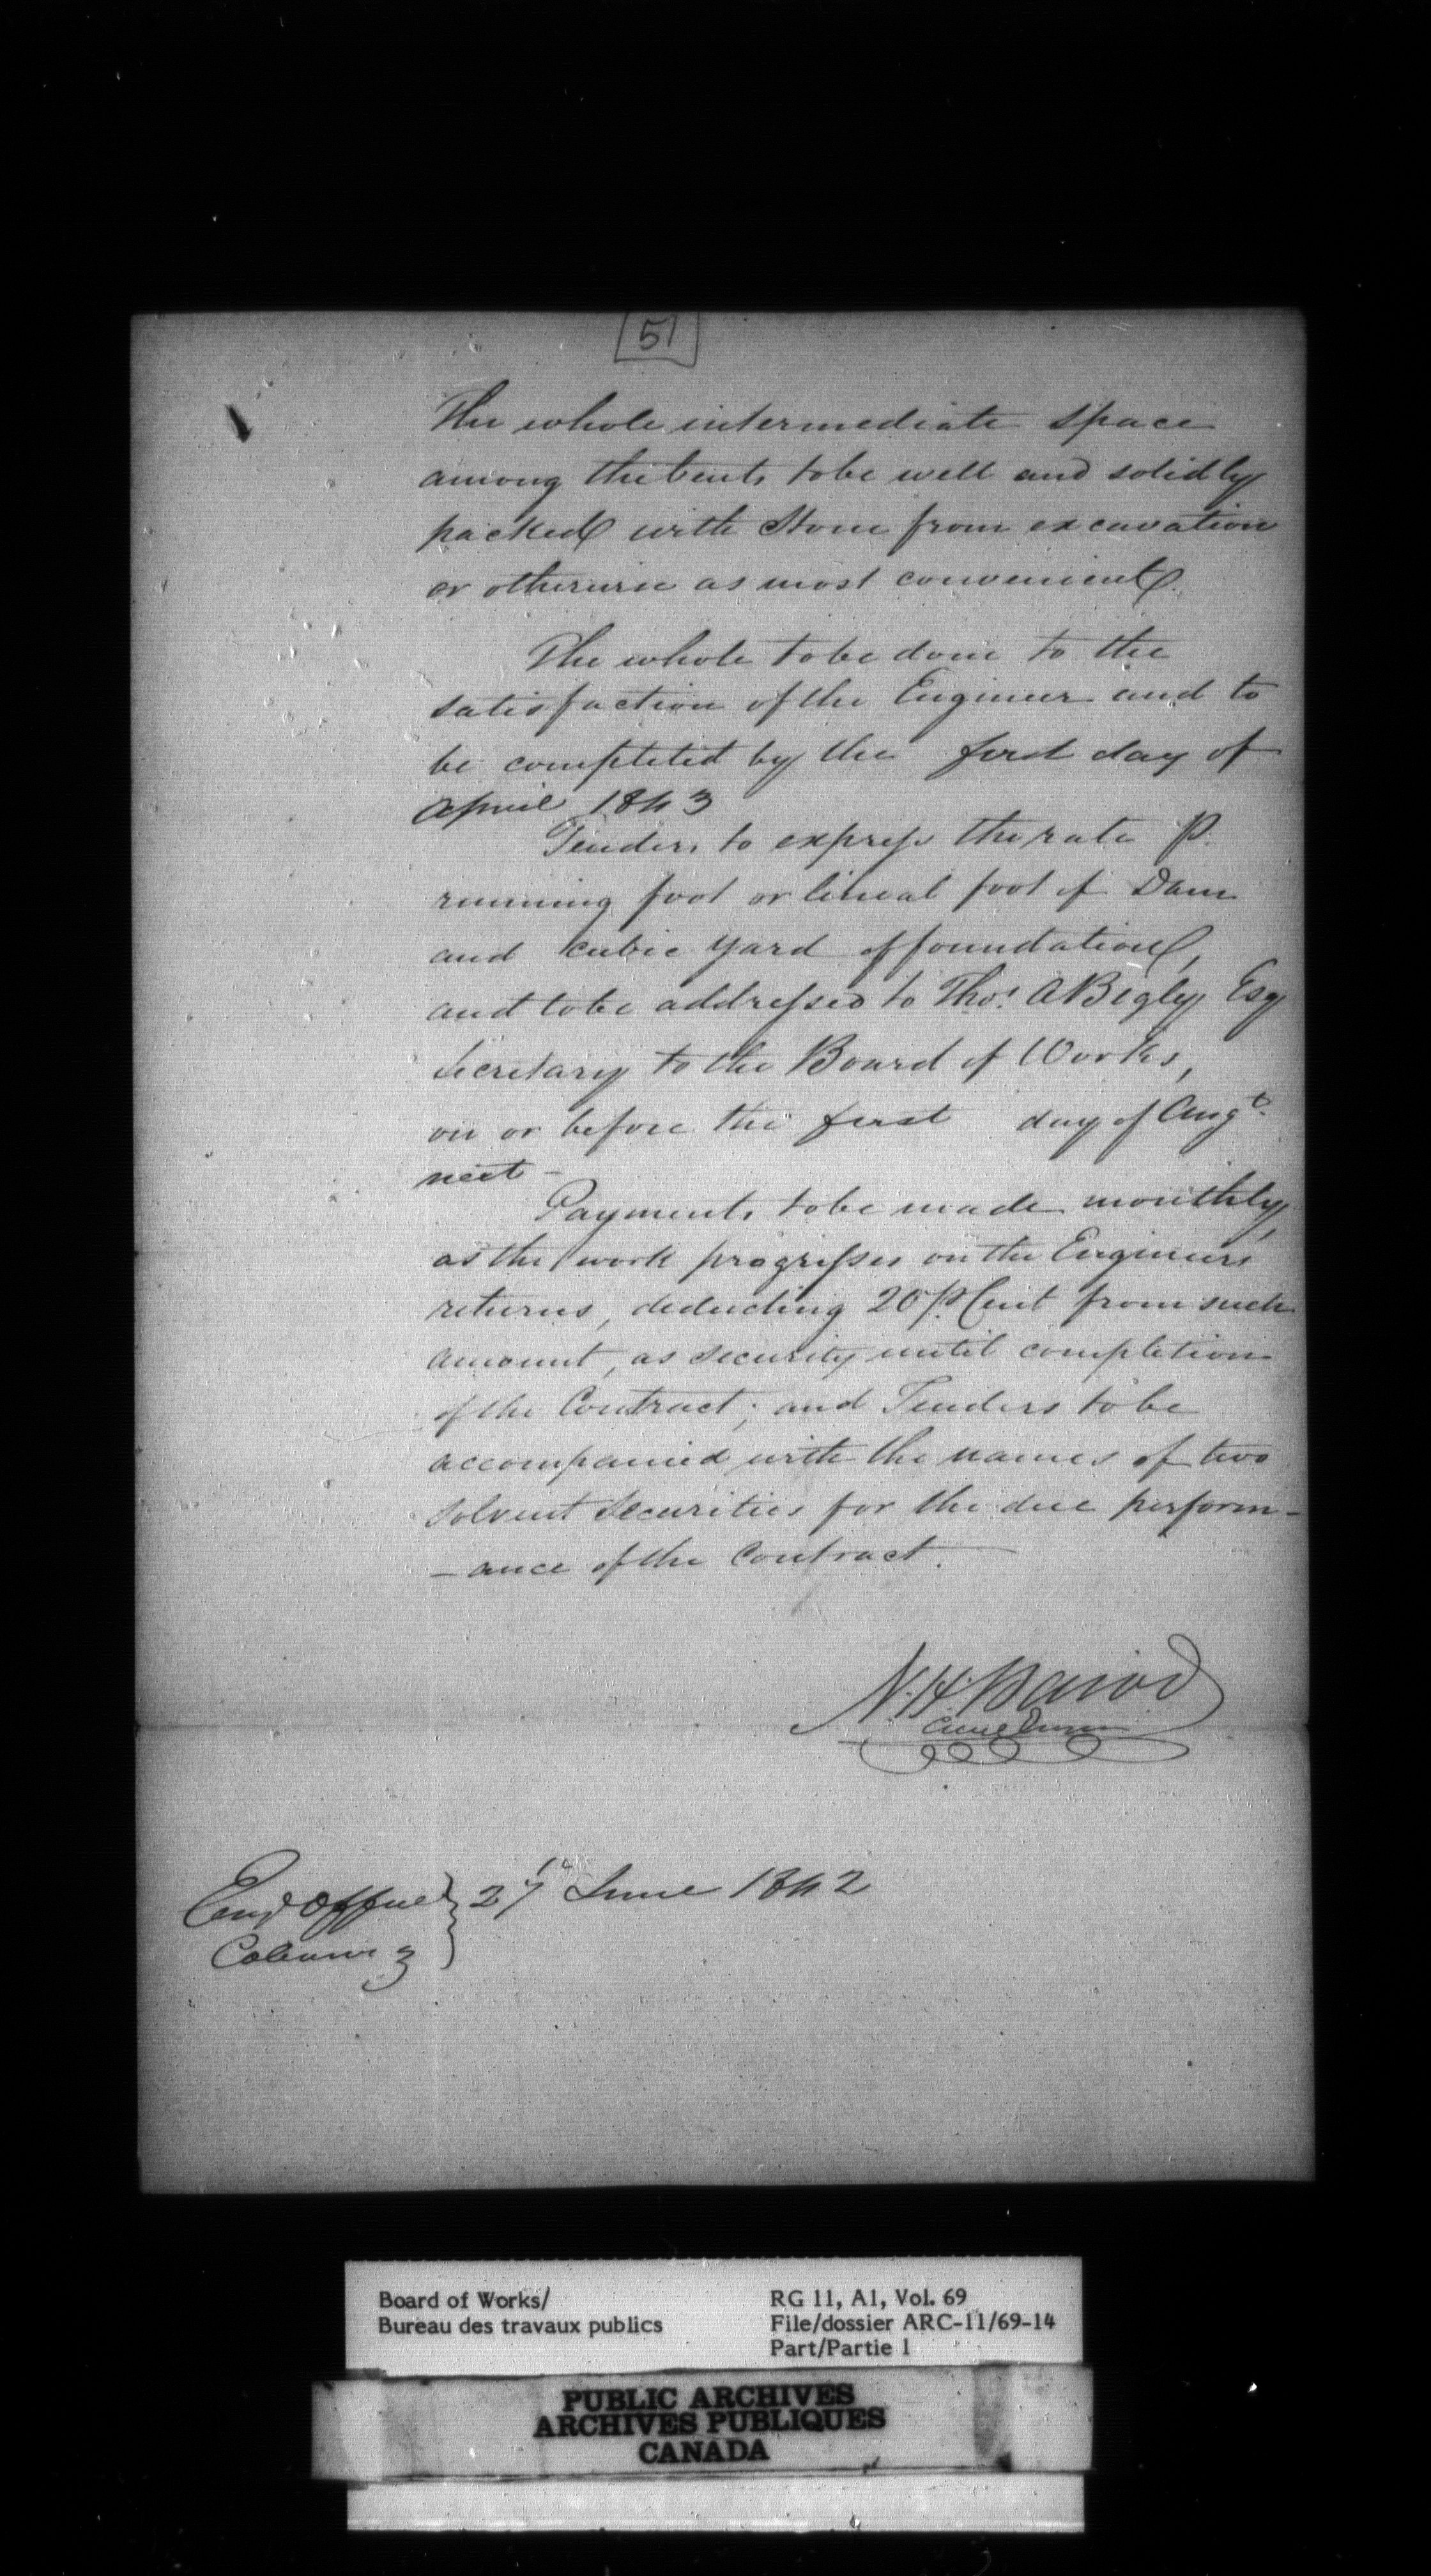 51
The whole intermediate space
among the bents to be well and solidly
packed with Stone from excavation
or otherwise as most convenient.
The whole to be done to the
satisfaction of the Engineer and to
be completed by the first day of
April 1843
Tenders to express the rate P.
running foot or lineal foot of Dam
and cubic yard of foundation,
and to be addressed to Thos. A Begly Esq
Secretary to the Board of Works,
on or before the first day of Augt.
next -
Payments to be made monthly,
as the work progresses on the Engineers
returns, deducting 20 P. Cent from such
amount, as security until completion
of the Contract; and Tenders to be
accompanied with the names of two
solvent Securities for the due perform-
-ance of the Contract.
N. H. Baird
Civil Engr
Eng. Office
Cobourg
27 June 1842
Board of Works/
Bureau des travaux publics
RG 11, A1, Vol. 69
File/dossier ARC-11/69-14
Part/Partie 1
PUBLIC ARCHIVES
ARCHIVES PUBLIQUES
CANADA